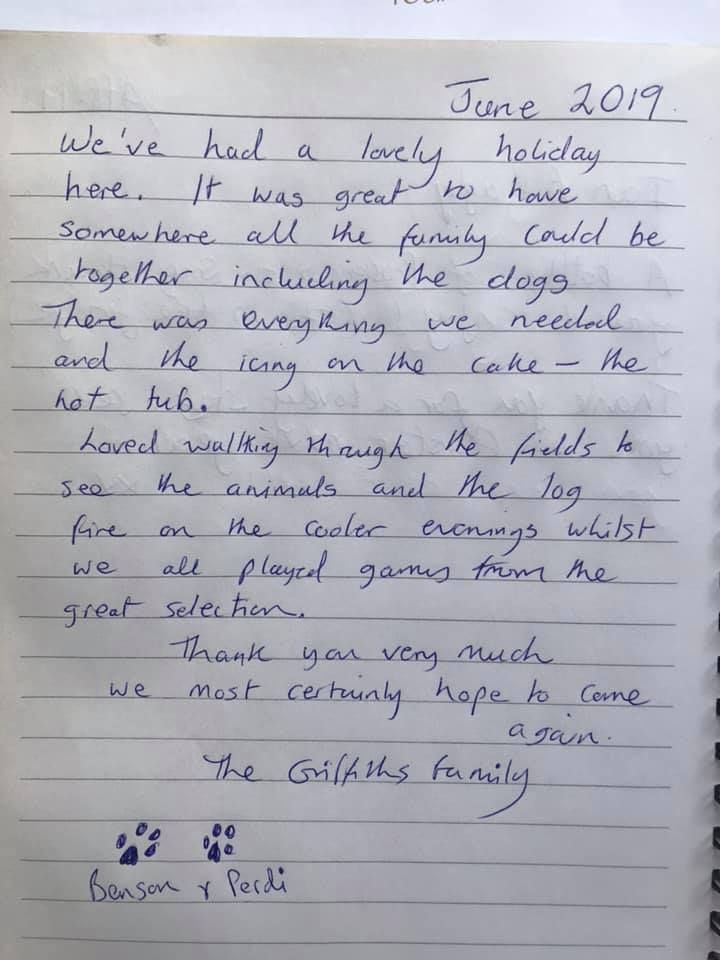 June 2019.
We've had a lovely holiday
here. It was great to have
somewhere all the family could be
together including the dogs
There was everything we needed
and the icing on the cake – the
hot tub.
Loved walking through the fields to
see the animals and the log
fire on the cooler evenings whilst
we all played games from the
great selection.
Thank you very much
we most certainly hope to come
again.
The Griffiths family
Benson & Perdi